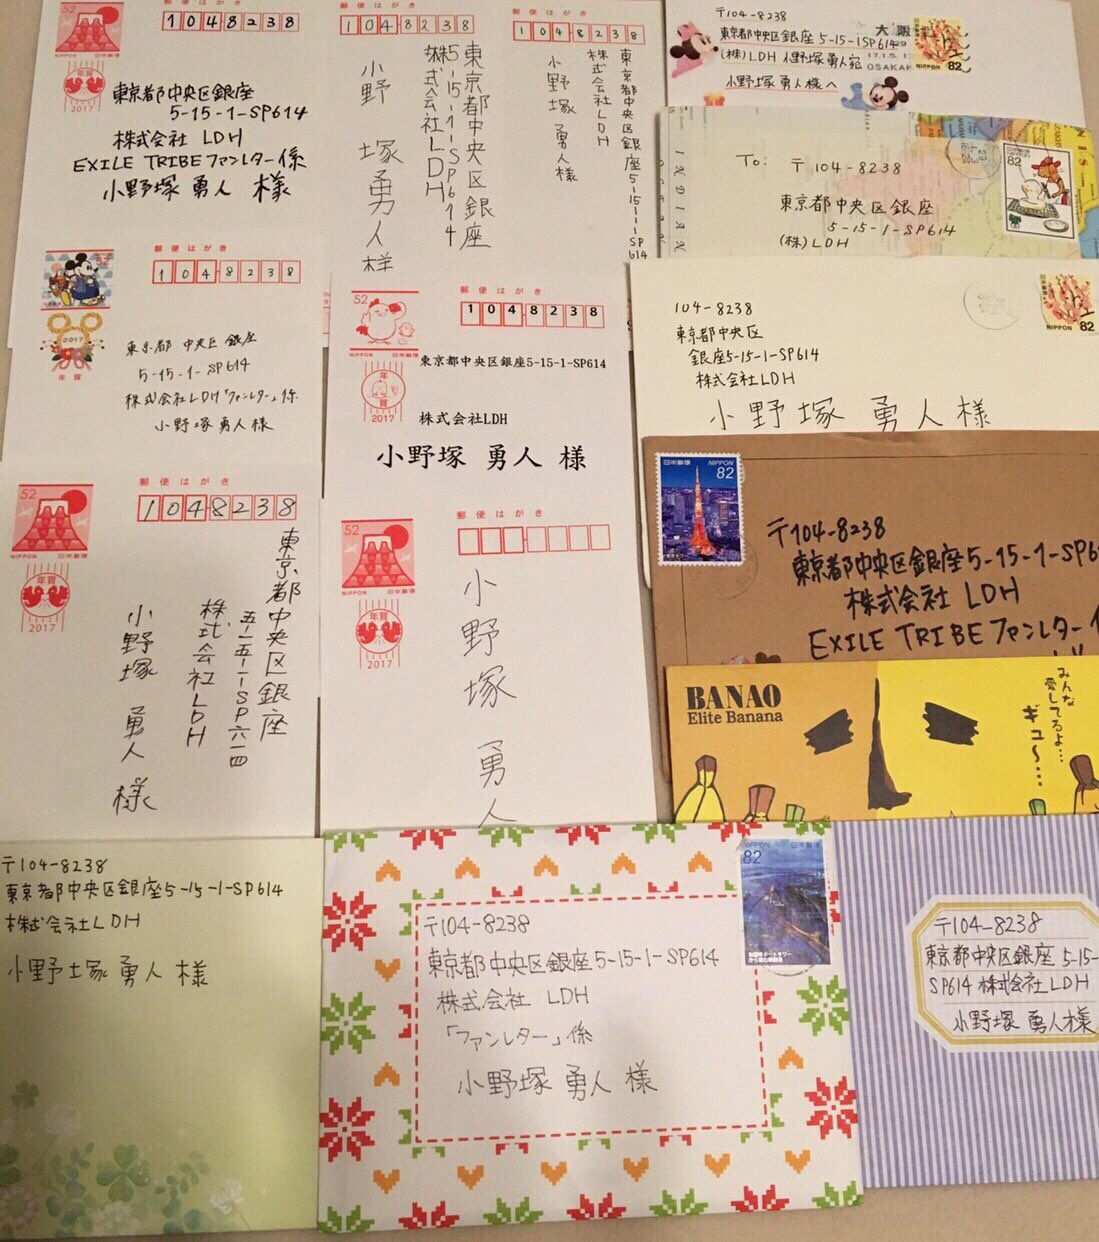 52
郵便はがき
1048238
NIPPON 日本郵便
年賀
2017
東京都中央区銀座
5-15-1-SP614
株式会社 LDH
EXILE TRIBE ファンレター係
小野塚 勇人 様
郵便はがき
1048238
東京都中央区銀座
5-15-1-SP614
株式会社LDH
小野塚勇人様
郵便はがき
1048238
東京都中央区銀座5-15-1-SP
614
株式会社LDH
小野塚勇人様
〒104-8238
東京都中央区銀座 5-15-1SP614
(株)LDH 小野塚勇人宛
小野塚 勇人様へ
大阪
17.1.5.
OSAKAK
NIPPON
82
INDIAN
To:
〒104-8238
東京都中央区銀座
5-15-1-SP614
(株)LDH
82
52
郵便はがき
1048238
2017
年賀
東京都 中央区 銀座
5-15-1-SP614
株式会社LDH「ファンレター」係
小野塚勇人様
52
郵便はがき
1048238
NIPPON 日本郵便
年賀
2017
東京都中央区銀座5-15-1-SP614
株式会社LDH
小野塚 勇人 様
104-8238
東京都中央区
銀座5-15-1-SP614
株式会社LDH
小野塚 勇人様
NIPPON 82
52
郵便はがき
1048238
NIPPON 日本郵便
年賀
2017
東京都中央区銀座
五-一五-一-SP六一四
株式会社LDH
小野塚 勇人 様
52
郵便はがき
NIPPON 日本郵便
年賀
2017
小野塚 勇人
日本郵便 NIPPON
82
〒104-8238
東京都中央区銀座5-15-1-SP6
株式会社 LDH
EXILE TRIBE ファンレター係
BANAO
Elite Banana
みんな
愛してるよ…
ギュ〜…
〒104-8238
東京都中央区銀座5-15-1-SP614
株式会社LDH
小野塚勇人 様
NIPPON 日本郵便
82
〒104-8238
東京都中央区銀座5-15-1-SP614
株式会社 LDH
「ファンレター」係
小野塚勇人 様
〒104-8238
東京都中央区銀座 5-15-
SP614 株式会社LDH
小野塚 勇人様